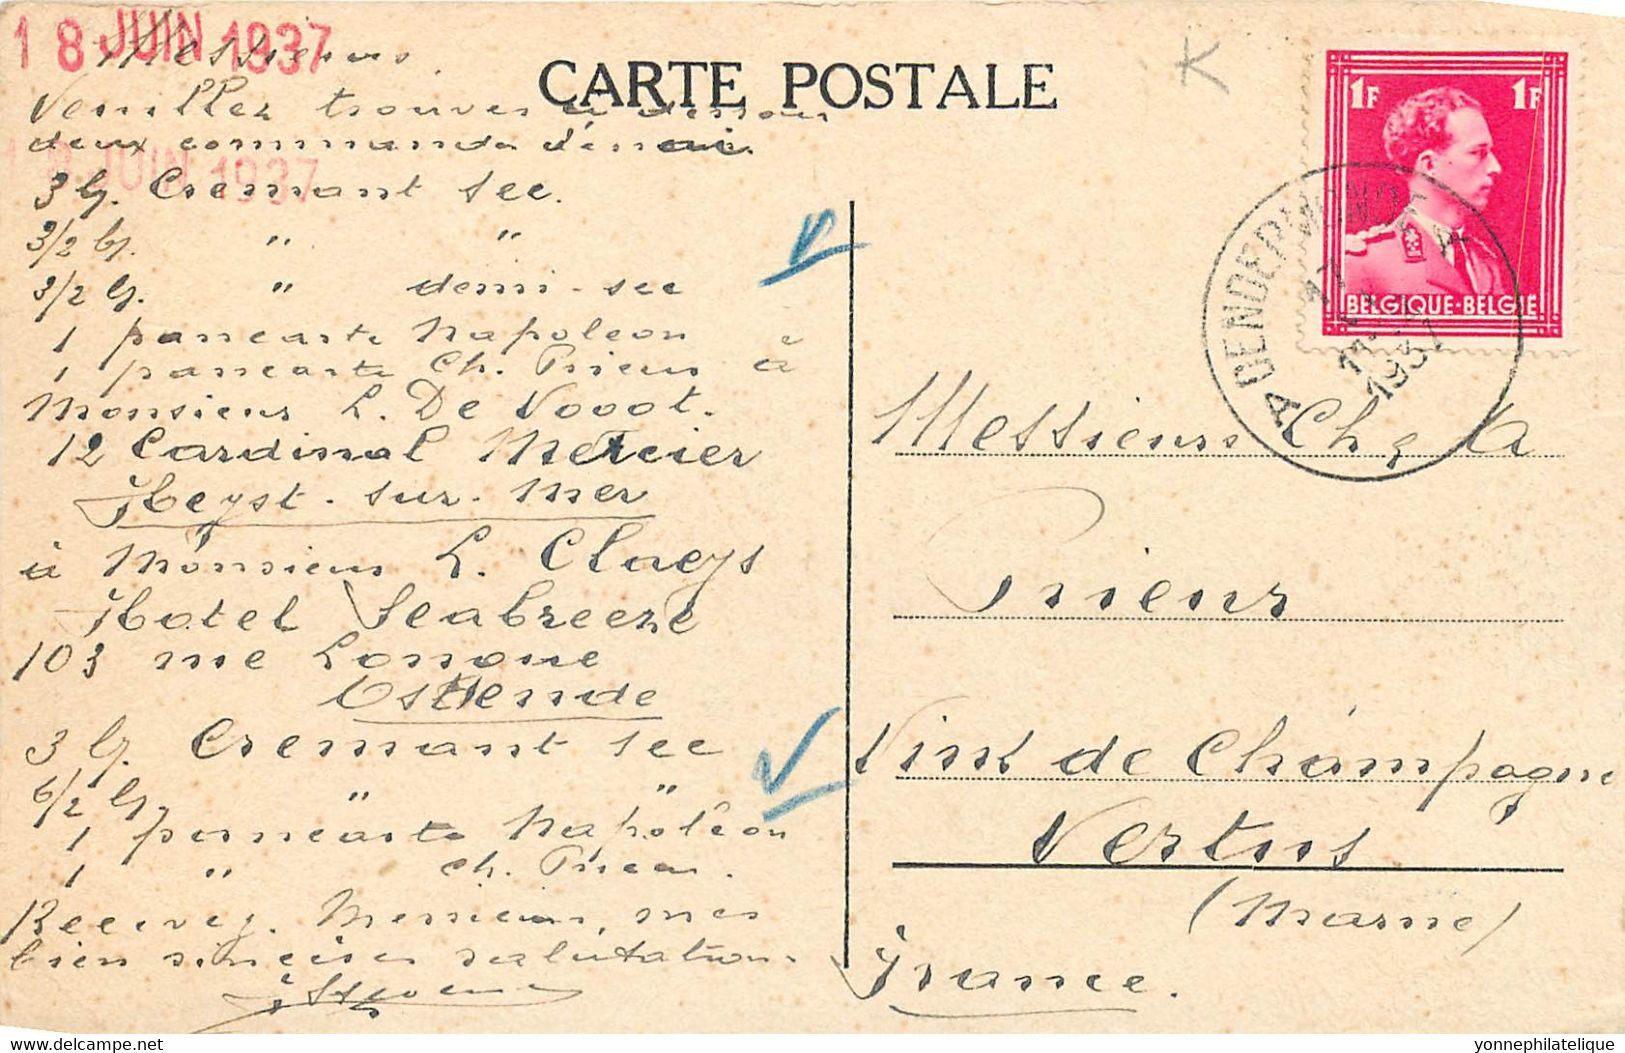 18 JUIN 1937
Messieurs.
CARTE POSTALE
K
Veuillez trouver ci dessous
deux commandes d'émoi.
18 JUIN 1937
3 b. Cremant sec.
3/2 b. " "
3/2 b. " demi-sec
1 pancarte Napoleon
1 pancarte Ch. Prieur à
Monsieur L. De Vooot.
12 Cardinal Mercier
Heyst-sur-Mer
à Monsieur L. Claeys
Hotel Seabreeze
103 rue Longue
Ostende
3 b. Cremant sec
6/2 b. " "
1 pancarte Napoléon
1 " Ch. Prieur.
Recevez, Messieurs, mes
bien sincères salutations.
1F 1F
BELGIQUE-BELGIE
A DENDERMONDE A
17
1937
Messieurs Ch & A
Prieur
Vins de Champagne
Vertus
(Marne)
France.
yonnephilatelique
www.delcampe.net